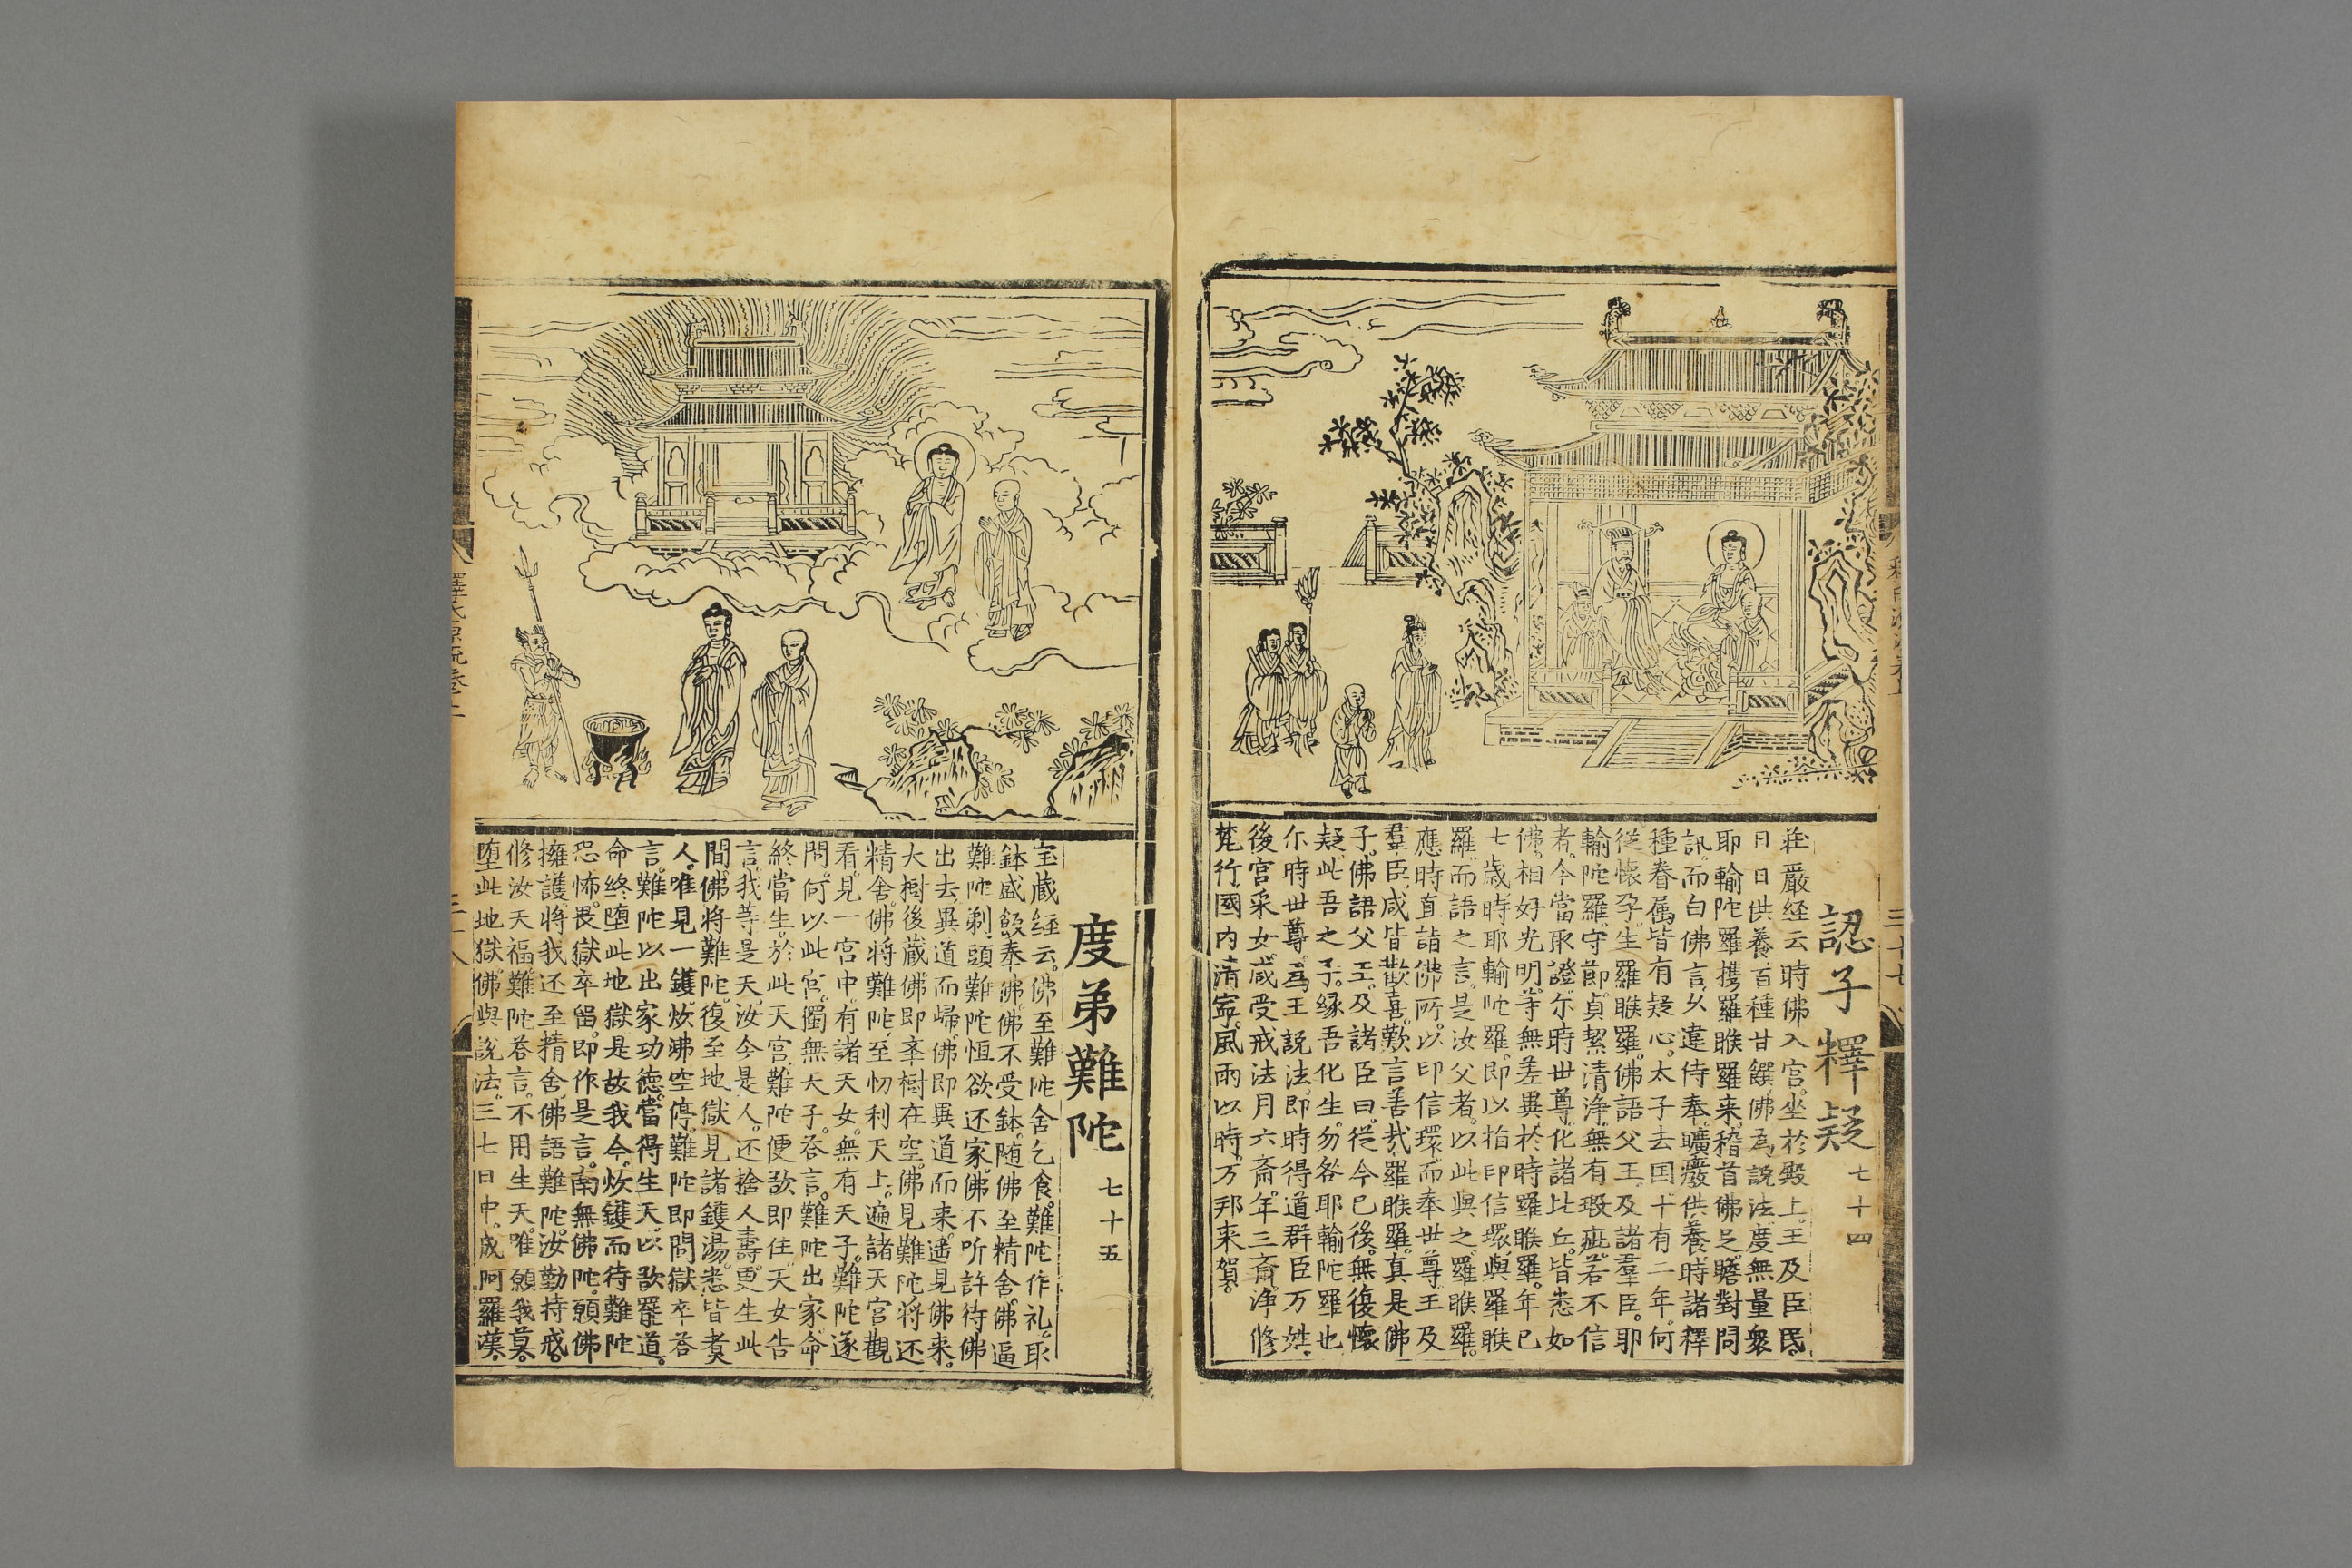 認子釋疑 七十四
莊嚴経云時佛入宮坐於殿上王及臣民
日日供養百種甘饌佛為說法度無量衆
耶輸陀羅携羅睺羅来稽首佛足瞻對問
訊而白佛言久違侍奉曠癈供養時諸釋
種眷属皆有疑心太子去国十有二年何
從懷孕生羅睺羅佛語父王及諸羣臣耶
輸陀羅守節貞絜清淨無有瑕疵若不信
者今當取證尒時世尊化諸比丘皆悉如
佛相好光明等無差異於時羅睺羅年已
七歲時耶輸陀羅即以指印信環與羅睺
羅而語之言是汝父者以此與之羅睺羅
應時直詣佛所以印信環而奉世尊王及
羣臣咸皆歡喜歎言善哉羅睺羅真是佛
子佛語父王及諸臣曰從今已後無復懷
疑此吾之子緣吾化生勿咎耶輸陀羅也
尒時世尊為王說法即時得道群臣万姓
後宮采女咸受戒法月六齋年三齋淨修
梵行國内清寧風雨以時万邦来賀
度弟難陀 七十五
宝蔵経云佛至難陀舍乞食難陀作礼取
鉢盛飯奉佛佛不受鉢随佛至精舍佛逼
難陀剃頭難陀恒欲还家佛不听許待佛
出去異道而歸佛即異道而来遥見佛来
大樹後蔵佛即夆樹在空佛見難陀将还
精舍佛将難陀至忉利天上遍諸天宮觀
看見一宮中有諸天女無有天子難陀遂
問何以此宮獨無天子答言難陀出家命
終當生於此天宮難陀便欲即住天女告
言我等是天汝今是人还捨人壽更生此
間佛将難陀復至地獄見諸鑊湯悉皆煑
人唯見一鑊炊沸空停難陀即問獄卒答
言難陀以出家功德當得生天以欲罷道
命終堕此地獄是故我今炊鑊而待難陀
恐怖畏獄卒留即作是言南無佛陀願佛
擁護将我还至精舍佛語難陀汝勤持戒
修汝天福難陀答言不用生天唯願我莫
堕此地獄佛與說法三七日中成阿羅漢